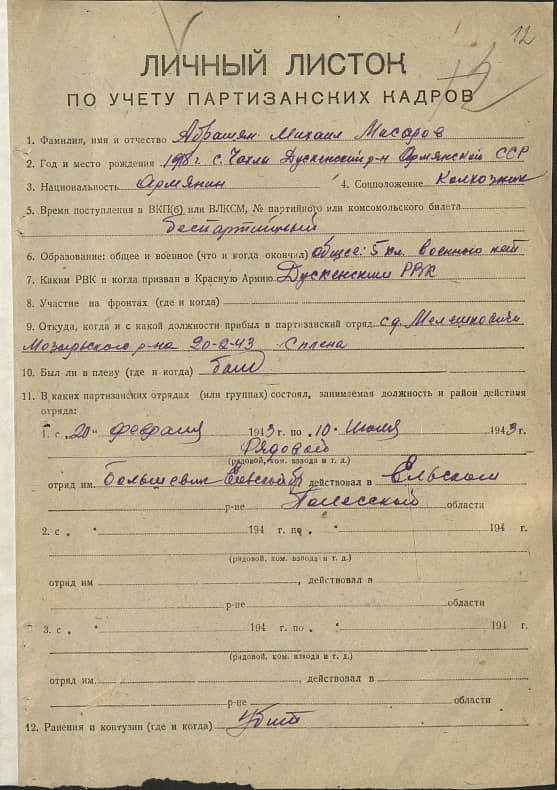 12
ЛИЧНЫЙ ЛИСТОК
ПО УЧЕТУ ПАРТИЗАНСКИХ КАДРОВ
1. Фамилия, имя и отчество Абрамян Михаил Масаров
2. Год и место рождения 1918 г. с. Чахлы Дускенский р-н Армянской ССР
3. Национальность Армянин 4. Соцположение Колхозник
5. Время поступления в ВКП(б) или ВЛКСМ, № партийного или комсомольского билета
беспартийный
6. Образование: общее и военное (что и когда окончил) общее: 5 кл. военного нет
7. Каким РВК и когда призван в Красную Армию Дускенским РВК
8. Участие на фронтах (где и когда)
9. Откуда, когда и с какой должности прибыл в партизанский отряд с д. Мелешковичи
Мозырьского р-на 20-2-43 с плена
10. Был ли в плену (где и когда) был
11. В каких партизанских отрядах (или группах) состоял, занимаемая должность и район действия
отряда:
1. с „20" февраля 1943 г. по „10" июля 1943 г.
Рядовой
(рядовой, ком. взвода и т. д.)
отряд им. Большевик действовал в Ельском
р-не Полесской области
2. с „ " 194 г. по „ " 194 г.
(рядовой, ком. взвода и т. д.)
отряд им , действовал в
р-не области
3. с „ " 194 г. по „ " 194 г.
(рядовой, ком. взвода и т. д.)
отряд им. , действовал в
р-не области
12. Ранения и контузии (где и когда) Убит